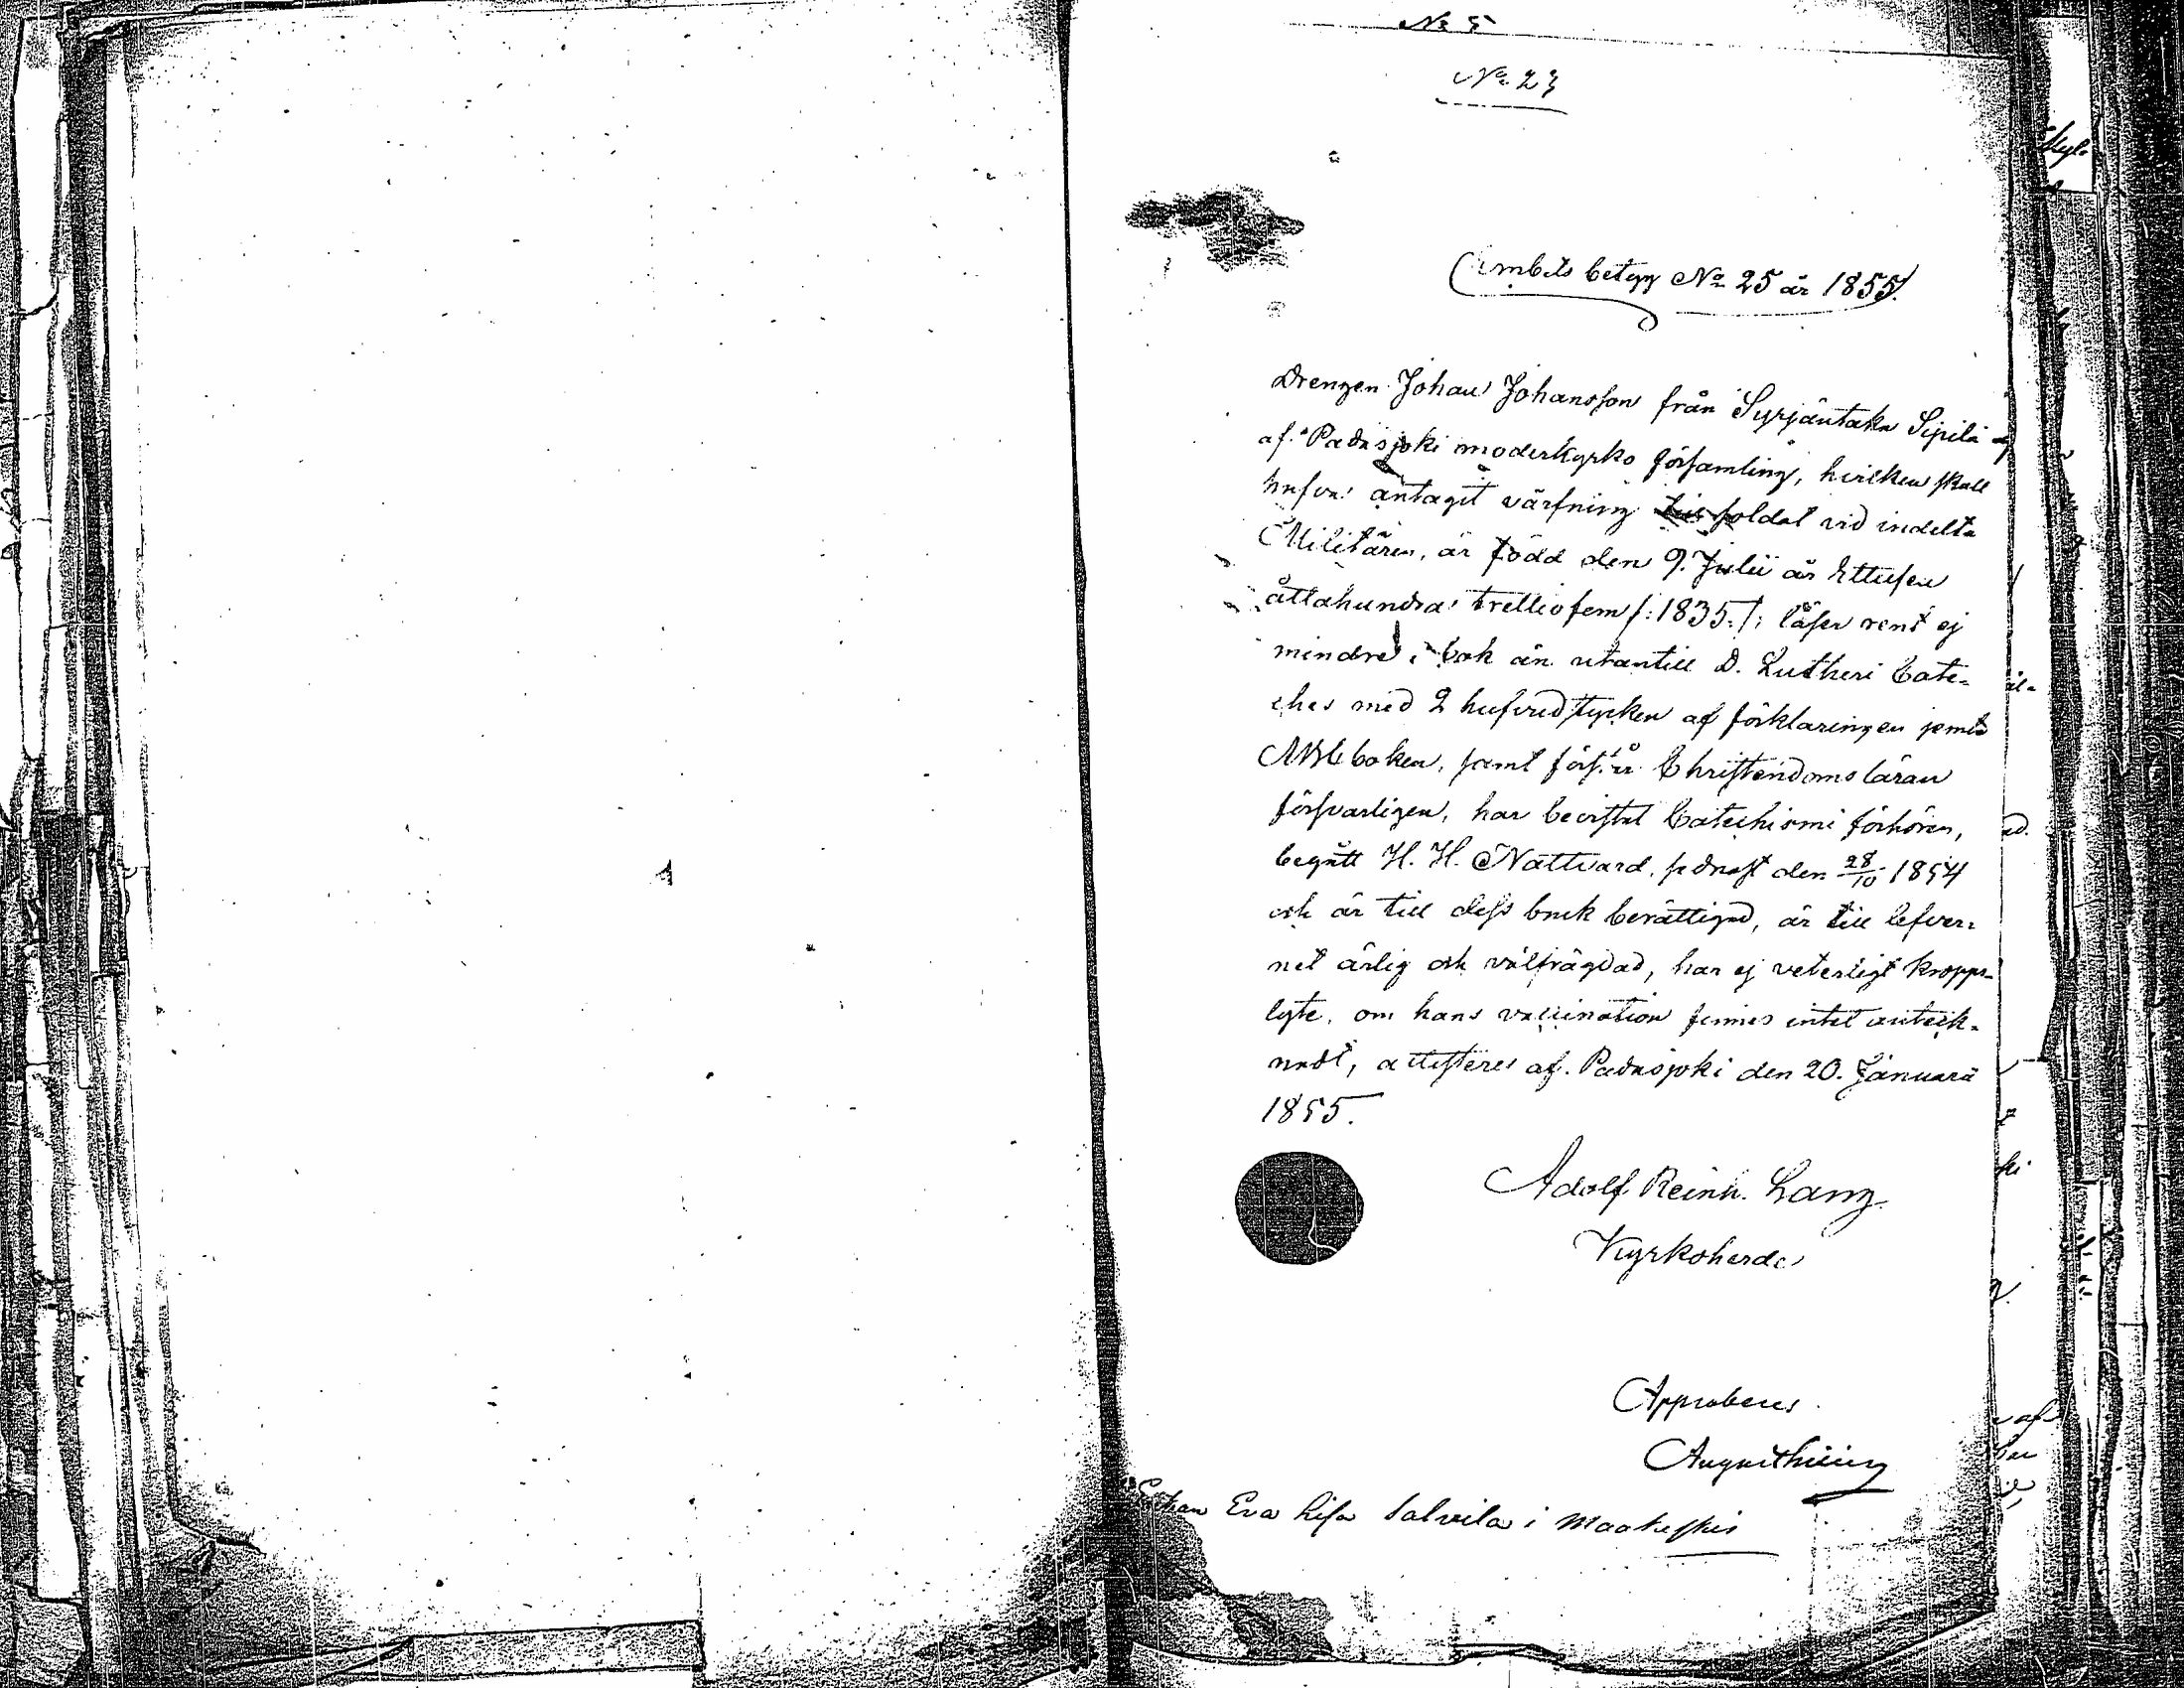 No 5
No 23
Embets betyg No 25 år 1855.
Drengen Johan Johansson från Syrjäntaka Sipilä
af Padasjoki moderkyrko församling, hvilken skall
hafva antagit värfning till soldat vid indelta
Militären, är född den 9. Julii år Ettusen
åttahundra trettiofem /: 1835 :/; läser rent ej
mindre i bok än utantill D. Lutheri Cate-
ches med 2 hufvudstycken af förklaringen jemte
ABCboken, samt förstår Christendoms läran
försvarligen, har bevistat Catechismi förhören,
begått H. H. Nattvard, sednast den 28/10 1854
och är till dess bruk berättigad, är till lefver-
net ärlig och välfrägdad, har ej veterligt kropps-
lyte, om hans vaccination finnes intet anteck-
nadt, attesteres af. Padasjoki den 20. Januarii
1855.
Adolf Reinh. Lang
Kyrkoherde
Approberes
Enkan Eva Lisa Salvila i Maakeskis